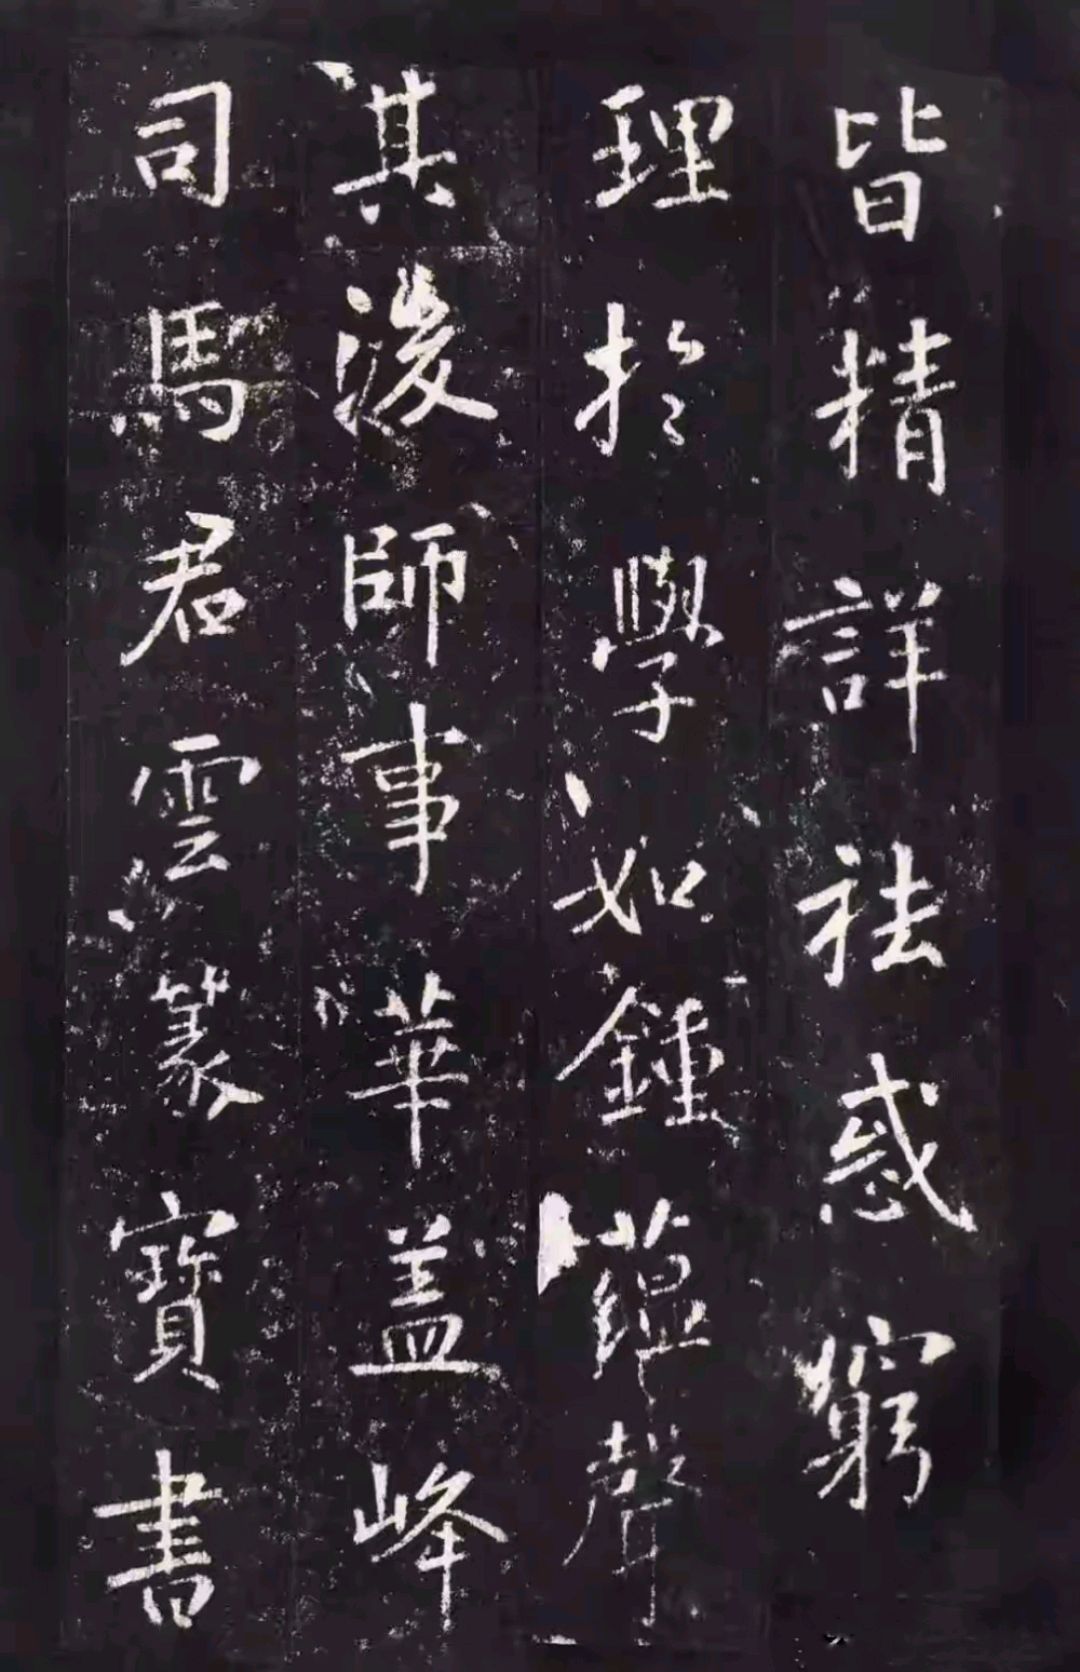 皆精詳祛惑窮
理於學如鍾蘊聲
其後師事華盖峰
司馬君雲篆寶書